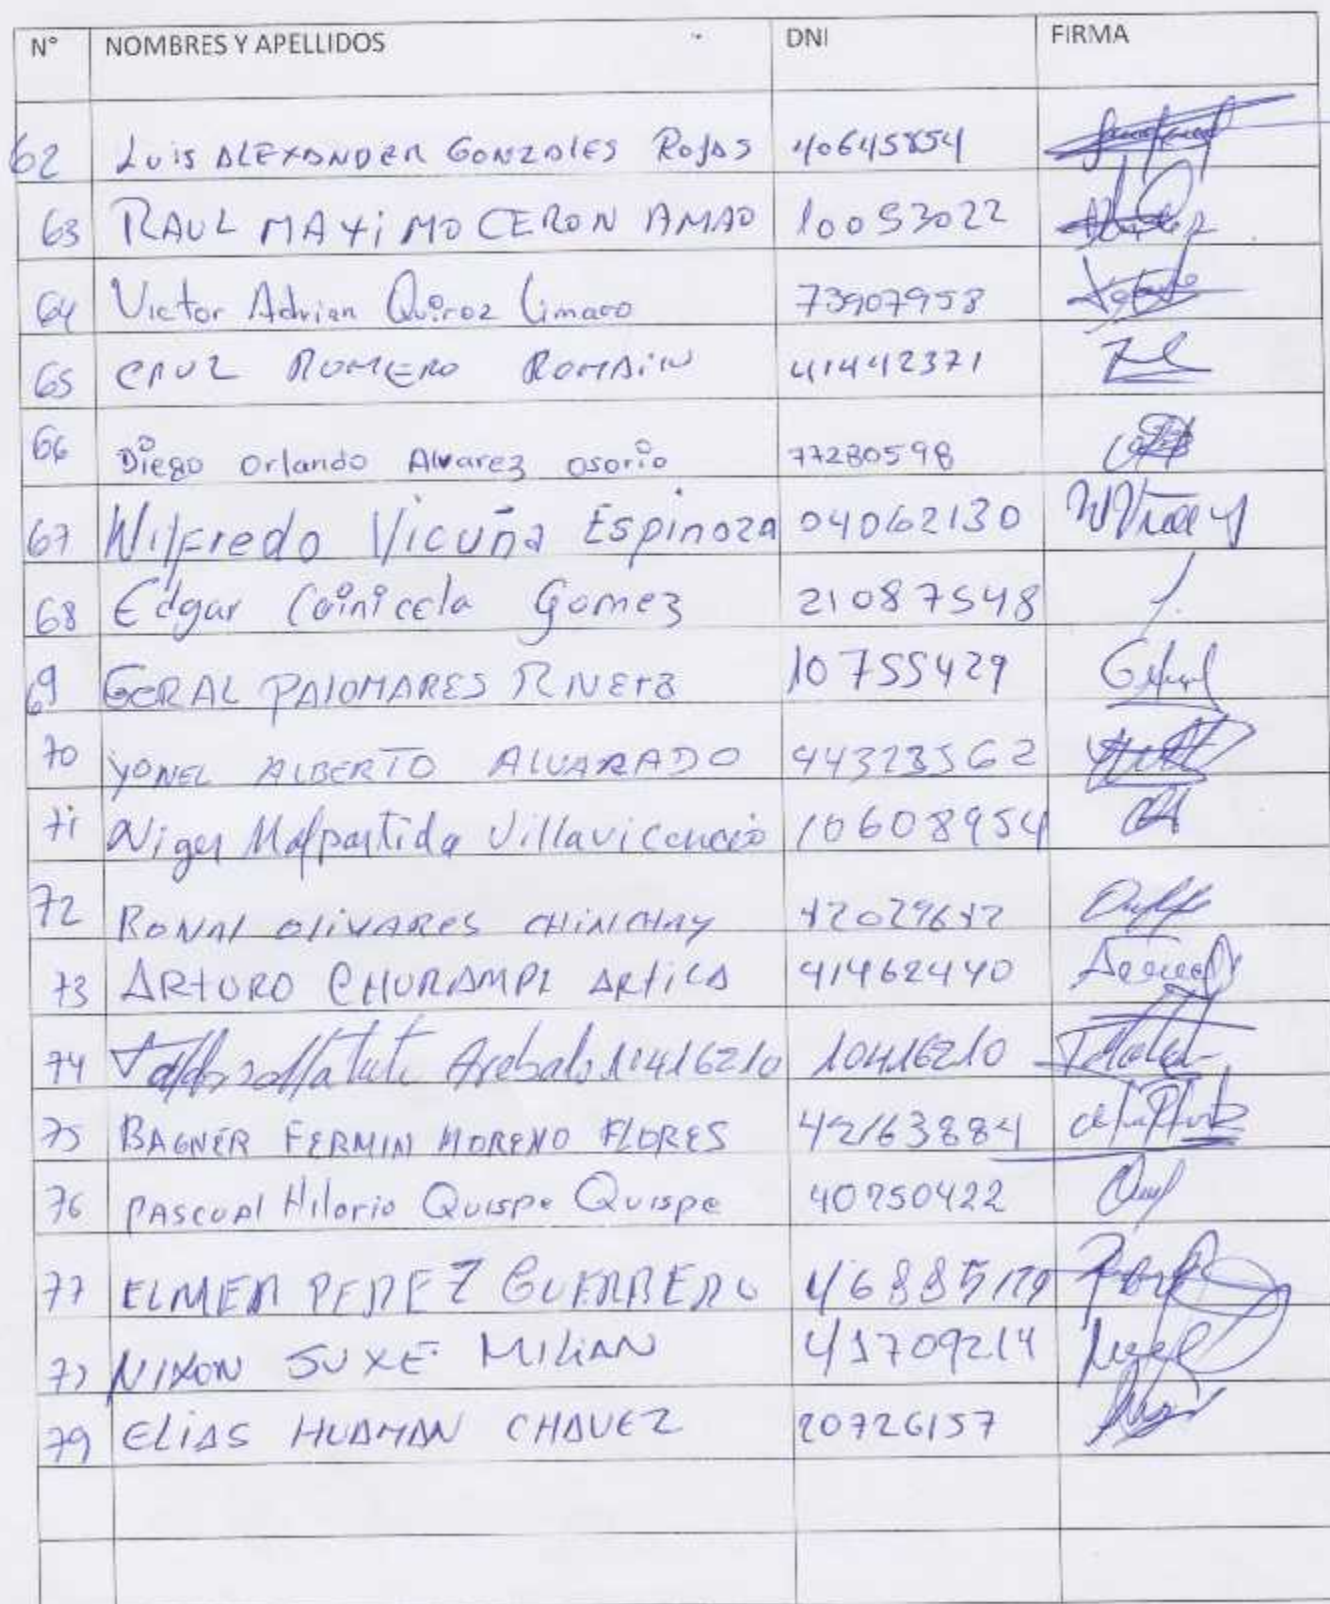 N° NOMBRES Y APELLIDOS DNI FIRMA
62 Luis ALEXANDER GONZALES ROJAS 40645854
63 RAUL MAXiMO CERON AMAO 10053022
64 Victor Adrian Quiroz 73907958
65 CRUZ ROMERO ROMAiN 41442371
66 Diego orlando Alvarez osorio 77280598
67 Wilfredo Vicuña Espinoza 04062130
68 Edgar Gomez 21087548
69 GERAL PALOMARES RIVERA 10755429
70 YONEL ALBERTO ALVARADO 44323562
71 Niger Malpartida Villavicencio 10608954
72 RONAL OLiVARES CHINCHAY
73 ARTURO CHURAMPI ARTiCA 41462440
74 Arebalo 10416210 10416210
75 BAGNER FERMIN MORENO FLORES 42163884
76 PASCUAl Hilario Quispe Quispe 40750422
77 ELMER PEREZ GUERRERO
NIXON SUXE MILIAN 41709214
79 ELIAS HUAMAN CHAVEZ 20726157